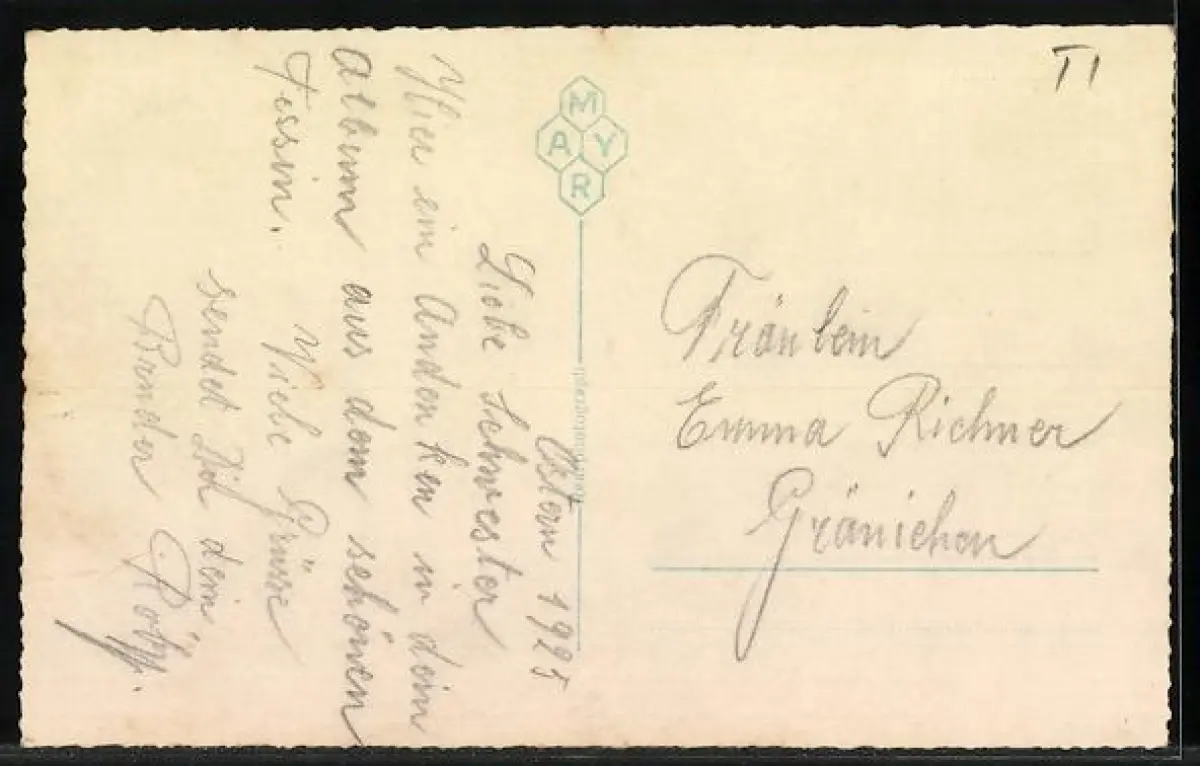 Ostern 1925
Liebe Schwester
Hier ein Andenken in dein
Album aus dem schönen
Tessin.
Viele Grüsse
sendet Dich dein
Bruder Röby.
M
A Y
R
TI
Fräulein
Emma Richner
Gränichen